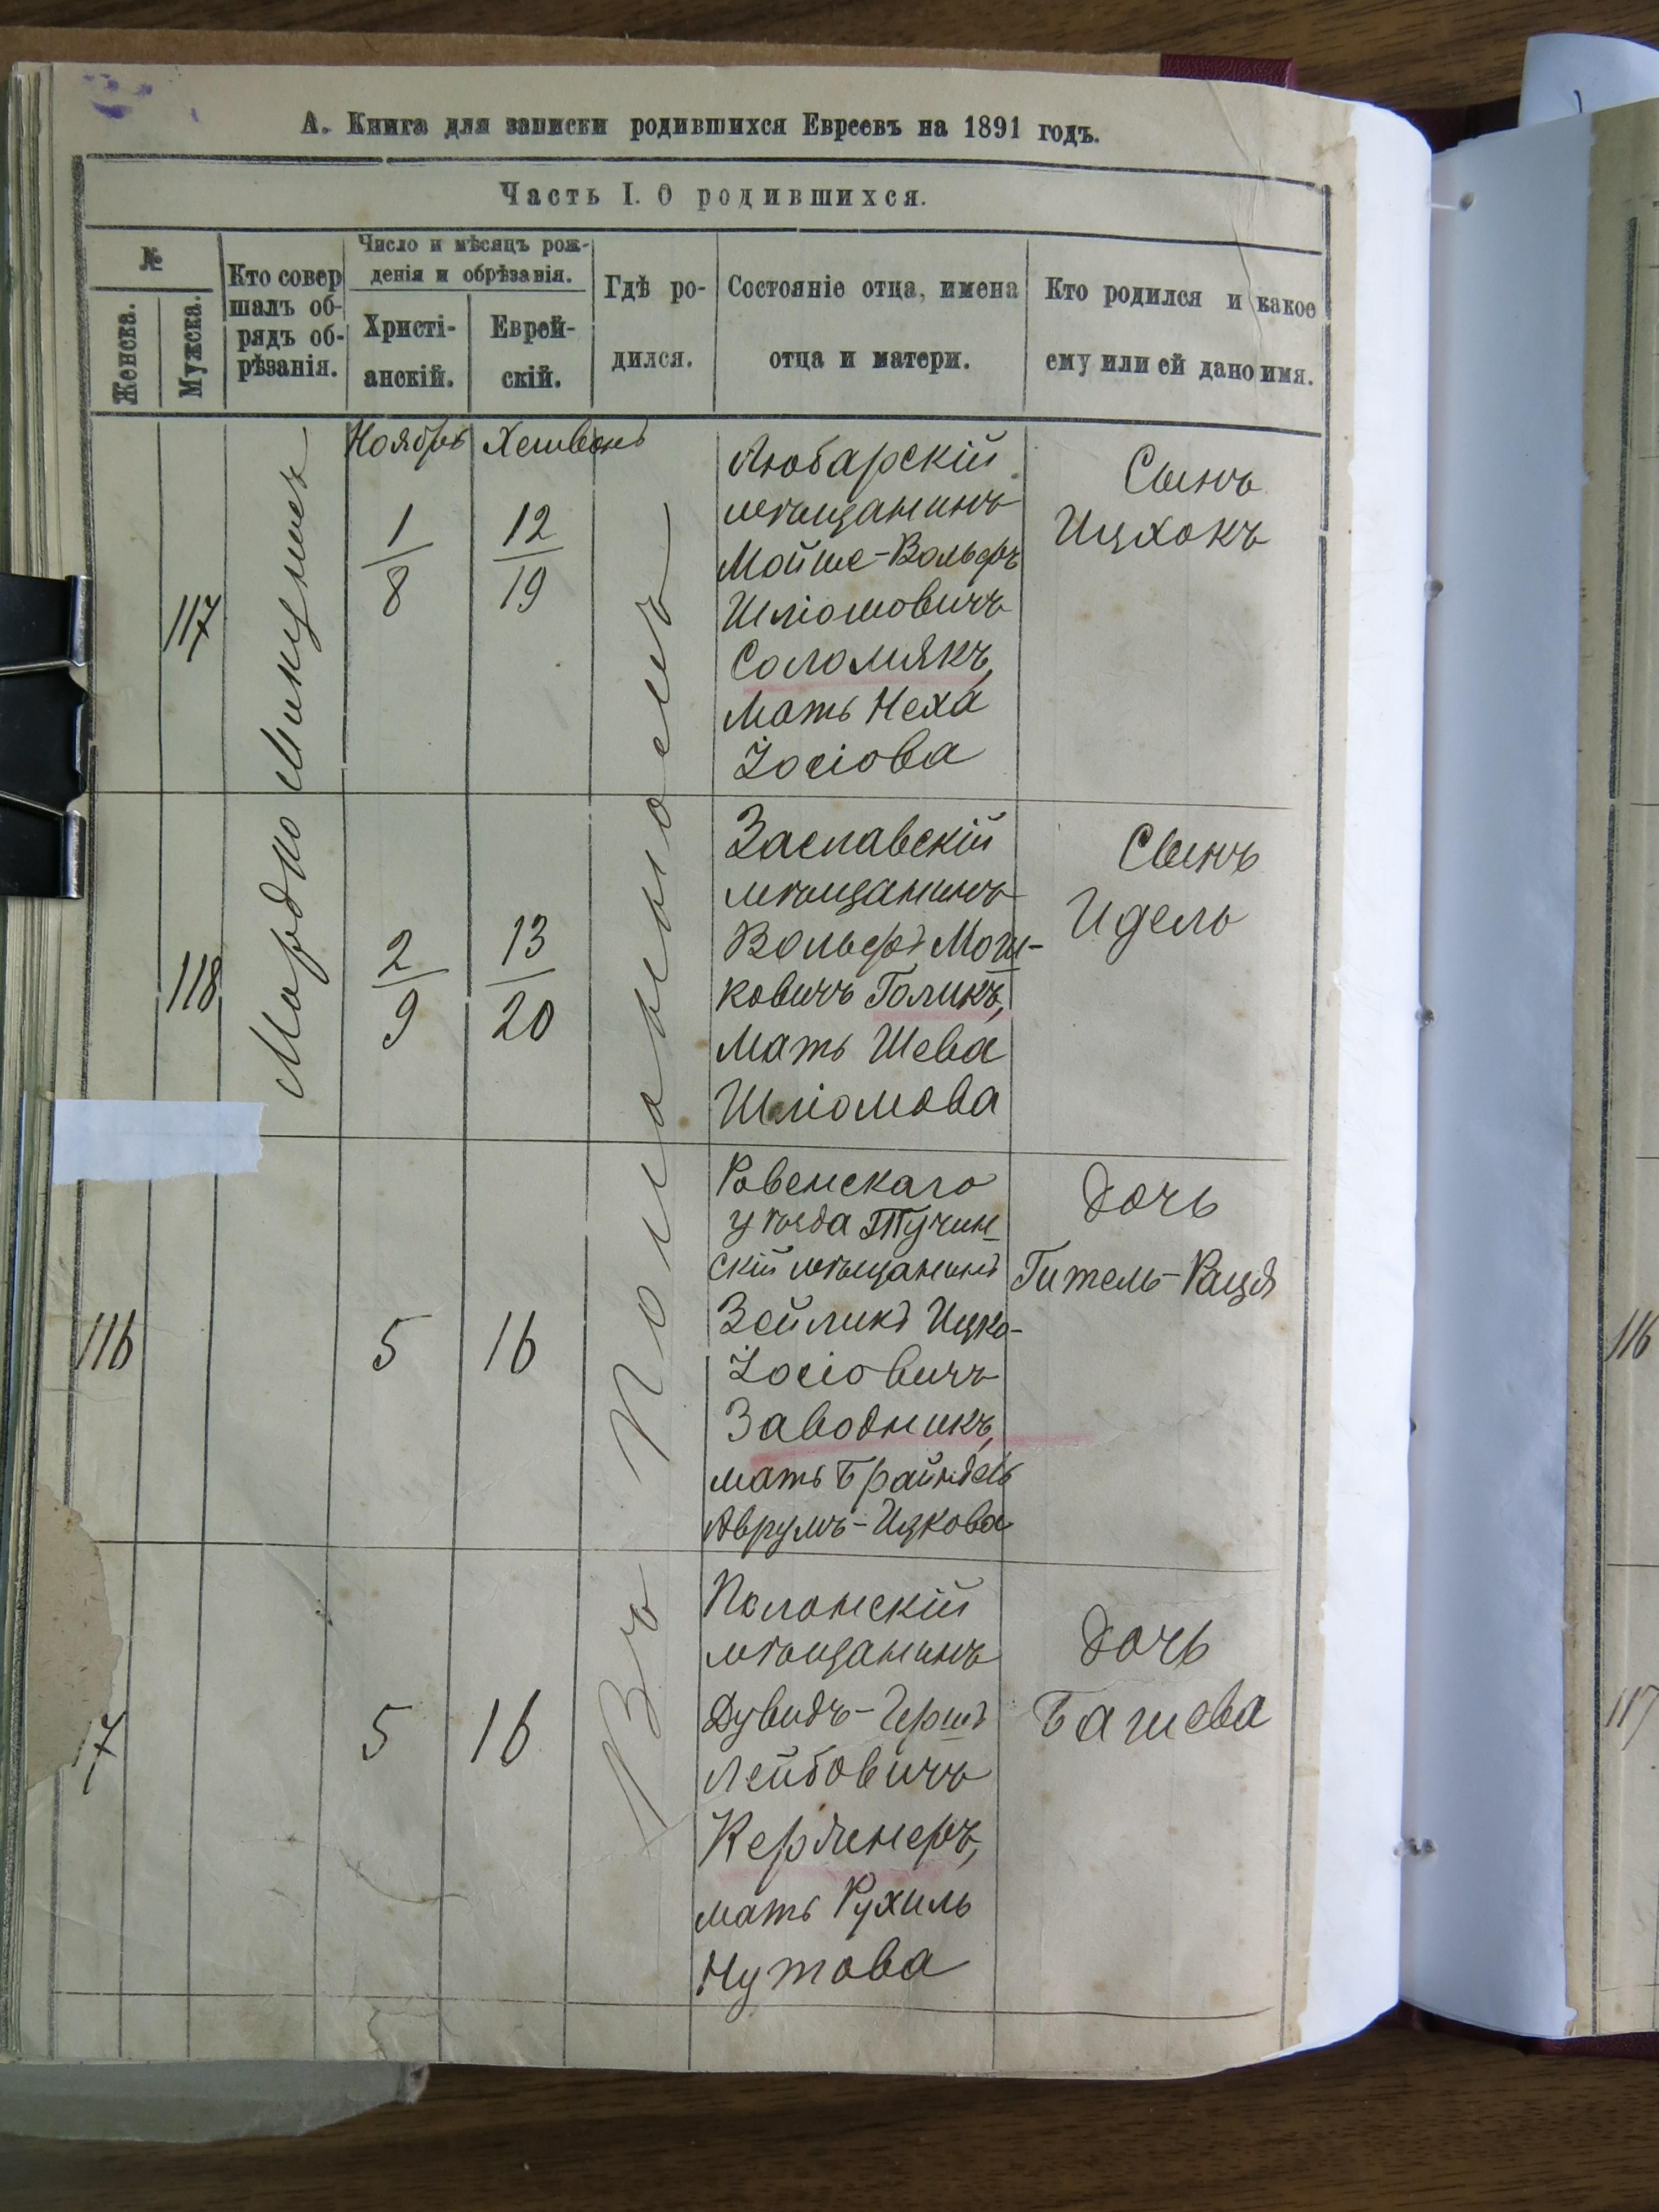 А. Книга для записки родившихся Евреевъ на 1891 годъ.
Часть I. О родившихся.
№
Женска.
Мужска.
Кто совер
шалъ об-
рядъ об-
рѣзанія.
Число и мѣсяцъ рож-
денія и обрѣзанія.
Христі-
анскій.
Еврей-
скій.
Гдѣ ро-
дился.
Состояніе отца, имена
отца и матери.
Кто родился и какое
ему или ей дано имя.
Ноябрь
Хешванъ
Мордко
Въ Полонномъ
117
1
8
12
19
Любарскій
мѣщанинъ
Мойше-Вольфъ
Шліомовичъ
Соломякъ,
Мать Неха
Іосіова
Сынъ
Ицхокъ
118
2
9
13
20
Заславскій
мѣщанинъ
Вольфъ Мош-
ковичъ Голикъ,
Мать Шева
Шліомова
Сынъ
Идель
116
5
16
Ровенскаго
уѣзда Тучин
скій мѣщанинъ
Зейликъ Ицко-
Іосіовичъ
Заводникъ,
мать Брайндель
Аврумъ-Ицкова
Дочь
Гитель-Рася
17
5
16
Полонскій
мѣщанинъ
Дувидъ-Гершъ
Лейбовичъ
Мать Рухиль
Нутова
Дочь
Башева
116
117